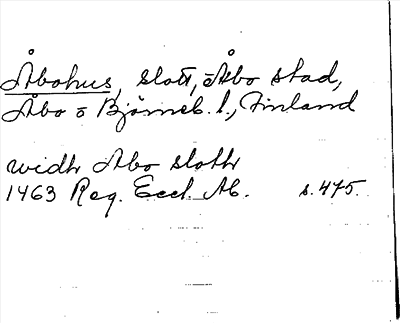 Åbohus, slott, Åbo stad,
Åbo o Björneb. l., Finland
widh Åbo sloth
1463 Reg. Eccl. Ab. s. 475.